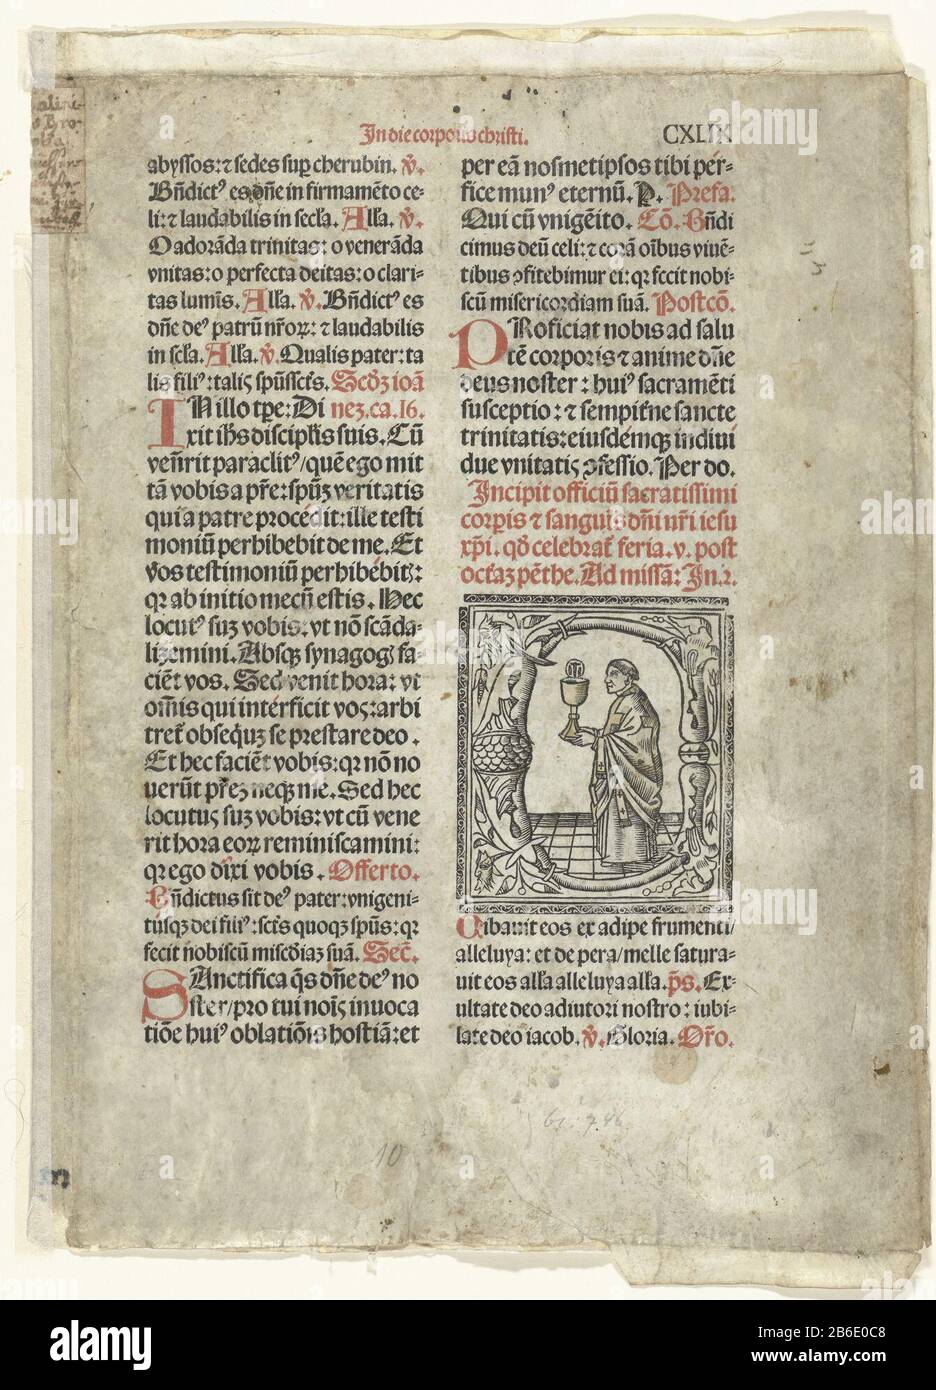 In die corporis christi.
CXLIX
abyssos: ⁊ sedes sup cherubin. ℣.
Bn̄dictꝰ es dn̄e in firmamēto ce-
li: ⁊ laudabilis in secl̄a. All'a. ℣.
O adorāda trinitas: o venerāda
vnitas: o perfecta deitas: o clari-
tas lumīs. All'a. ℣. Bn̄dictꝰ es
dn̄e deꝰ patrū nr̄oꝝ: ⁊ laudabilis
in scl̄a. All'a. ℣. Qualis pater: ta
lis filiꝰ: talis spūssct̄s. Scd̄ꝫ ioā
IN illo tp̄e: Di nez. ca. 16.
xit ih̄s discipl̄is suis. Cū
vēn̄rit paraclitꝰ/ quē ego mit
tā vobis a pr̄e: spūꝫ veritatis
qui a patre procédit: ille testi
moniū perhibebit de me. Et
vos testimoniū perhibébitis:
qꝛ ab initio mecū estis. Hec
locutꝰ suꝫ vobis. vt nō scāda-
lizemini. Absqꝫ synagogis fa-
ciēt vos. Sed venit hora: vt
om̄is qui intérficit vos: arbi
tret̄ obsequiꝫ se prestare deo.
Et hec faciēt vobis: qꝛ nō no
uerūt pr̄eꝫ neqꝫ me. Sed hec
locutus suꝫ vobis: vt cū vene
rit hora eoꝝ reminiscamini:
qꝛ ego dixi vobis. Offerto.
Bn̄dictus sit deꝰ pater: vnigeni-
tusqꝫ dei filiꝰ: sct̄s quoqꝫ spūs: qꝛ
fecit nobiscū miscd̄iaꝫ suā. Sec̄.
SAnctifica qs̄ dn̄e deꝰ no
ster/ pro tui noīs inuoca
tiōe huiꝰ oblatiōis hostiā: et
per eā nosmetipsos tibi pér-
fice munꝰ eternū. P. Prefa.
Qui cū vnigēito. Cō. Bn̄di
cimus deū celi: ⁊ corā oībus viuē-
tibus ꝯfitebimur ei: qꝛ fecit nobi-
scū misericordiam suā. Postcō.
PRoficiat nobis ad salu
tē corporis ⁊ anime dn̄e
deus noster: huiꝰ sacramēti
susceptio: ⁊ sempitn̄e sancte
trinitatis: eiusdémqꝫ indiui
due vnitatis ꝯfessio. Per do.
Incipit officiū sacratissimi
corpis ⁊ sanguis dn̄i nr̄i iesu
xp̄i. qd̄ celebrat̄ feria. v. post
octaꝫ pēthe. Ad missā: In.
Cibauit eos ex adipe frumenti/
alleluya: et de petra/ melle satura-
uit eos all'a alleluya all'a. ps. Ex-
ultate deo adiutori nostro: iubi-
late deo iacob. ℣. Gloria. Or̄o.
10
alamy
Image ID: 2B6E0C8
www.alamy.com